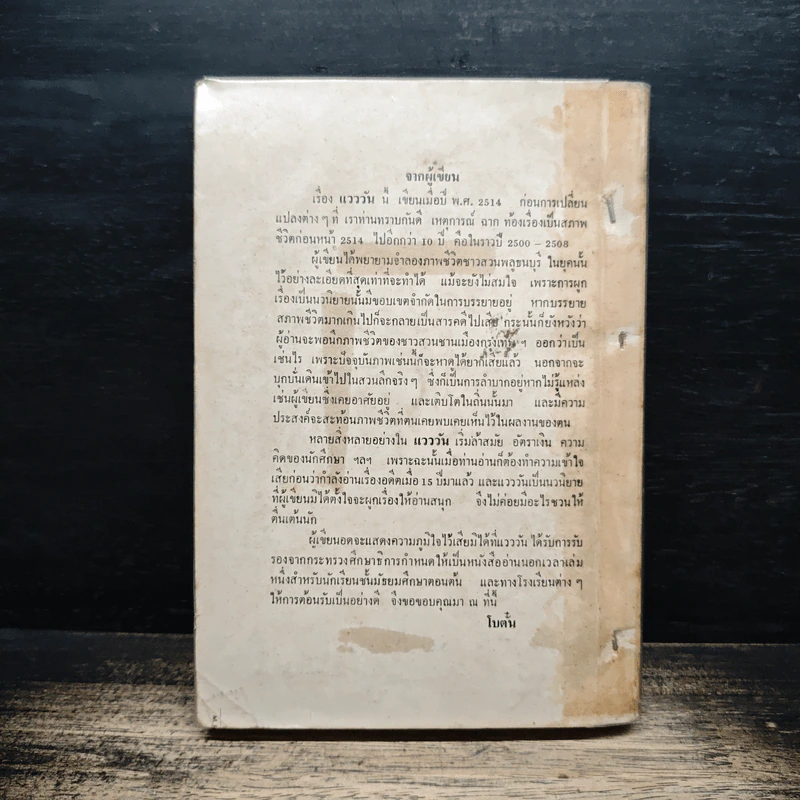 จากผู้เขียน
เรื่อง แวววัน นี้ เขียนเมื่อปี พ.ศ. 2514 ก่อนการเปลี่ยน
แปลงต่าง ๆ ที่ เราท่านทราบกันดี เหตุการณ์ ฉาก ท้องเรื่องเป็นสภาพ
ชีวิตก่อนหน้า 2514 ไปอีกกว่า 10 ปี คือในราวปี 2500 – 2508
ผู้เขียนได้พยายามจำลองภาพชีวิตชาวสวนพลูธนบุรี ในยุคนั้น
ไว้อย่างละเอียดที่สุดเท่าที่จะทำได้ แม้จะยังไม่สมใจ เพราะการผูก
เรื่องเป็นนวนิยายนั้นมีขอบเขตจำกัดในการบรรยายอยู่ หากบรรยาย
สภาพชีวิตมากเกินไปก็จะกลายเป็นสารคดีไปเสีย กระนั้นก็ยังหวังว่า
ผู้อ่านจะพอนึกภาพชีวิตของชาวสวนชานเมืองกรุงเทพ ฯ ออกว่าเป็น
เช่นไร เพราะปัจจุบันภาพเช่นนี้ก็จะหาดูได้ยากเสียแล้ว นอกจากจะ
บุกบั่นเดินเข้าไปในสวนลึกจริง ๆ ซึ่งก็เป็นการลำบากอยู่หากไม่รู้แหล่ง
เช่นผู้เขียนซึ่งเคยอาศัยอยู่ และเติบโตในถิ่นนั้นมา และมีความ
ประสงค์จะสะท้อนภาพชีวิตที่ตนเคยพบเคยเห็นไว้ในผลงานของตน
หลายสิ่งหลายอย่างใน แวววัน เริ่มล้าสมัย อัตราเงิน ความ
คิดของนักศึกษา ฯลฯ เพราะฉะนั้นเมื่อท่านอ่านก็ต้องทำความเข้าใจ
เสียก่อนว่ากำลังอ่านเรื่องอดีตเมื่อ 15 ปีมาแล้ว และแวววันเป็นนวนิยาย
ที่ผู้เขียนมิได้ตั้งใจจะผูกเรื่องให้อ่านสนุก จึงไม่ค่อยมีอะไรชวนให้
ตื่นเต้นนัก
ผู้เขียนอดจะแสดงความภูมิใจไว้เสียมิได้ที่แวววัน ได้รับการรับ
รองจากกระทรวงศึกษาธิการกำหนดให้เป็นหนังสืออ่านนอกเวลาเล่ม
หนึ่งสำหรับนักเรียนชั้นมัธยมศึกษาตอนต้น และทางโรงเรียนต่าง ๆ
ให้การต้อนรับเป็นอย่างดี จึงขอขอบคุณมา ณ ที่นี้
โบตั๋น